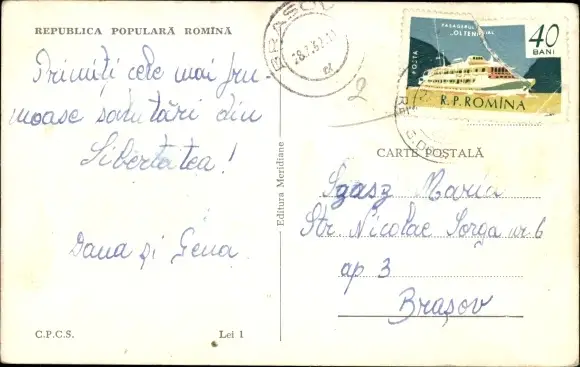 REPUBLICA POPULARĂ ROMÎNĂ
Primiți cele mai fru
moase salutări din
Libertatea!
Dana și Gena
C.P.C.S.
Lei 1
Editura Meridiane
BRAȘOV
2
POȘTA
PASAGERUL
"OLTENIȚA"
40
BANI
R.P.ROMÎNA
CARTE POSTALĂ
Szasz Maria
Str. Nicolae Iorga nr. 6
ap 3
Brașov